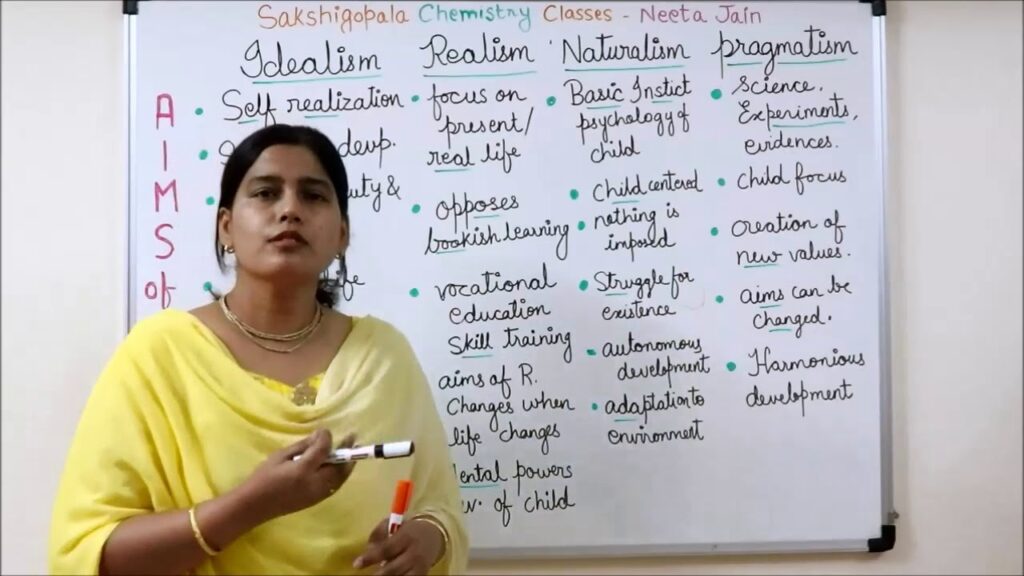 Sakshigopala Chemistry Classes - Neeta Jain
AIMS of
Idealism
Self realization
devp.
&
Realism
focus on
present/
real life
opposes
bookish learning
vocational
education
skill training
aims of R.
changes when
life changes
powers
of child
Naturalism
Basic Instict
psychology of
child
child centered
nothing is
imposed
Struggle for
existence
autonomous
development
adaptation to
environment
pragmatism
Science.
Experiments,
evidences.
child focus
creation of
new values.
aims can be
changed.
Harmonious
development